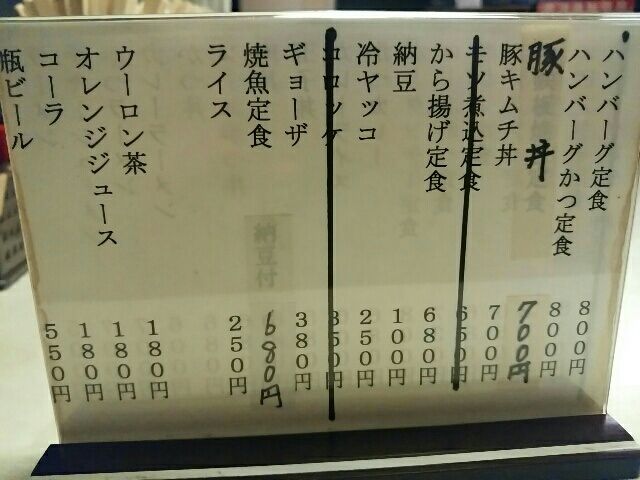 ハンバーグ定食 800円
ハンバーグかつ定食 800円
豚丼 700円
豚キムチ丼 700円
モツ煮込定食 650円
から揚げ定食 680円
納豆 100円
冷ヤッコ 250円
コロッケ 350円
ギョーザ 380円
焼魚定食 680円
ライス 250円
ウーロン茶 180円
オレンジジュース 180円
コーラ 180円
瓶ビール 550円
納豆付